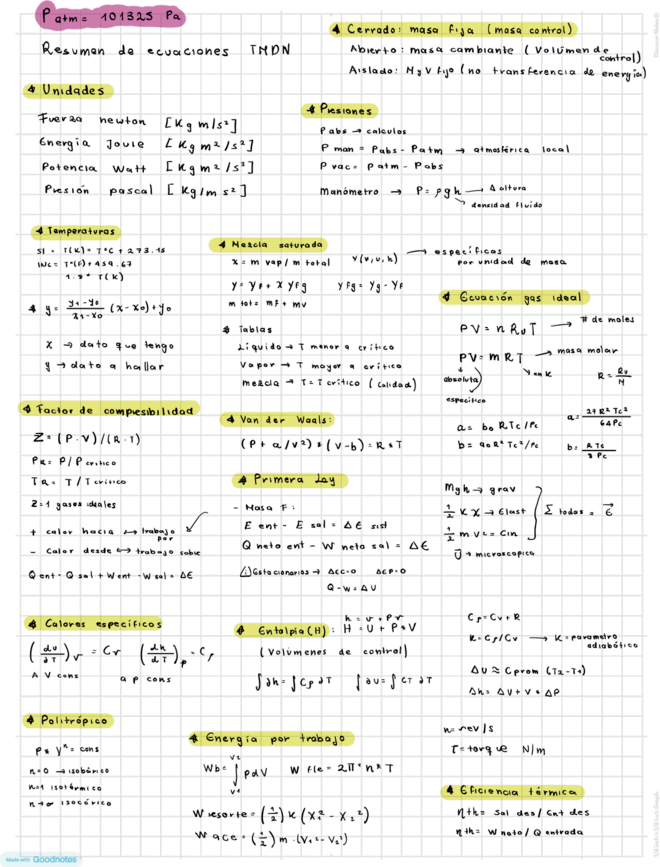 Patm = 101325 Pa
Resumen de ecuaciones TMDN
Cerrado: masa fija (masa control)
Abierto: masa cambiante (Volúmen de control)
Aislado: M y V fijo (no transferencia de energía)
Unidades
Fuerza newton [Kg m/s²]
Energía Joule [Kg m²/s²]
Potencia Watt [Kg m²/s³]
Presión pascal [Kg/m s²]
Presiones
P abs → calculos
P man = Pabs - Patm → atmosférica local
P vac = Patm - Pabs
Manómetro → P = ρgh → Δ altura
↳ densidad fluido
Temperaturas
SI = T(K) = T°C + 273.15
INC = T°(F) + 459.67
1.8 * T(K)
y = (y1-y0)/(x1-x0) (x-x0) + y0
x → dato que tengo
y → dato a hallar
Mezcla saturada
x = m vap / m total   y(v,u,h) → específicas por unidad de masa
y = yf + x yfg   yfg = yg - yf
m tot = mf + mv
Tablas
Líquido → T menor a crítico
Vapor → T mayor a crítico
mezcla → T = T crítico (calidad)
Ecuación gas ideal
PV = n Ru T → # de moles
PV = m R T → masa molar
absoluta   en K   R = Ru/M
específico
a = bo RTc/Pc   a = 27 R² Tc²/64Pc
b = ao R² Tc²/Pc   b = R Tc/8 Pc
Factor de compresibilidad
Z = (P·V)/(R·T)
PR = P/P crítico
TR = T/T crítico
Z=1 gases ideales
+ calor hacia ↔ trabajo por
- Calor desde ↔ trabajo sobre
Q ent - Q sal + W ent - W sal = ΔE
Van der Waals:
(P + a/v²) * (v-b) = R * T
Primera Ley
- Masa F:
E ent - E sal = ΔE sist
Q neto ent - W neto sal = ΔE
Estacionarios → ΔEC=0   ΔEP=0
Q - W = ΔU
Mgh → grav
½ K X → Elast
½ m V² = Cin
U → microscopica
Σ todas = E
Calores específicos
(du/∂T)v = Cv   (dh/dT)p = Cp
A V cons   a p cons
Entalpia (H):
h = v + Pv
H = U + P * V
(Volúmenes de control)
∫∂h = ∫Cp ∂T   ∫∂U = ∫CT ∂T
Cp = Cv + R
K = Cp/Cv → K = parametro adiabático
ΔU ≈ Cprom (T2 - T1)
Δh = ΔU + V * ΔP
Politrópico
P * Vⁿ = cons
n=0 → isobárico
n=1 isotérmico
n→∞ isocórico
Energía por trabajo
Wb = ∫ V1 V2 P dV   W fle = 2π * n * T
W resorte = (½) k (X1² - X2²)
W ace = (½) m · (V1² - V2²)
n = rev/s
T = torque N/m
Eficiencia térmica
ηth = Sal des / Ent des
ηth = W neto / Q entrada
Made with Goodnotes